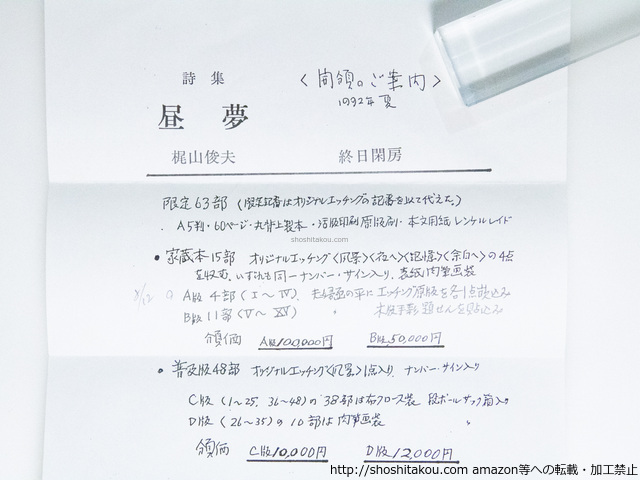 詩集 〈頒領のご案内〉
昼夢 1992年 夏
梶山俊夫 終日閑房
限定63部 (限定記番はオリジナルエッチングの記番を以て代える。)
A5判・60ページ・丸背上製本・活版印刷原版刷・本文用紙レンケルレイド
shoshitakou.com
• 家蔵本15部 オリジナルエッチング〈風景〉〈夜へ〉〈記憶〉〈余白へ〉の4点
を収む. いずれも同一ナンバー・サイン入り. 表紙肉筆画装
A版 4部 (I〜IV). エッチング原版を各1点嵌込み
B版 11部 (V〜XV)
領価 A版100,000円 B版50,000円
• 普及版48部 オリジナルエッチング〈風景〉1点入り. ナンバー・サイン入り
C版 (1〜25. 36〜48) の38部は布クロース装 段ボールサック箱入り
D版 (26〜35) の10部は肉筆画装
領価 C版10,000円 D版12,000円
http://shoshitakou.com amazon等への転載・加工禁止